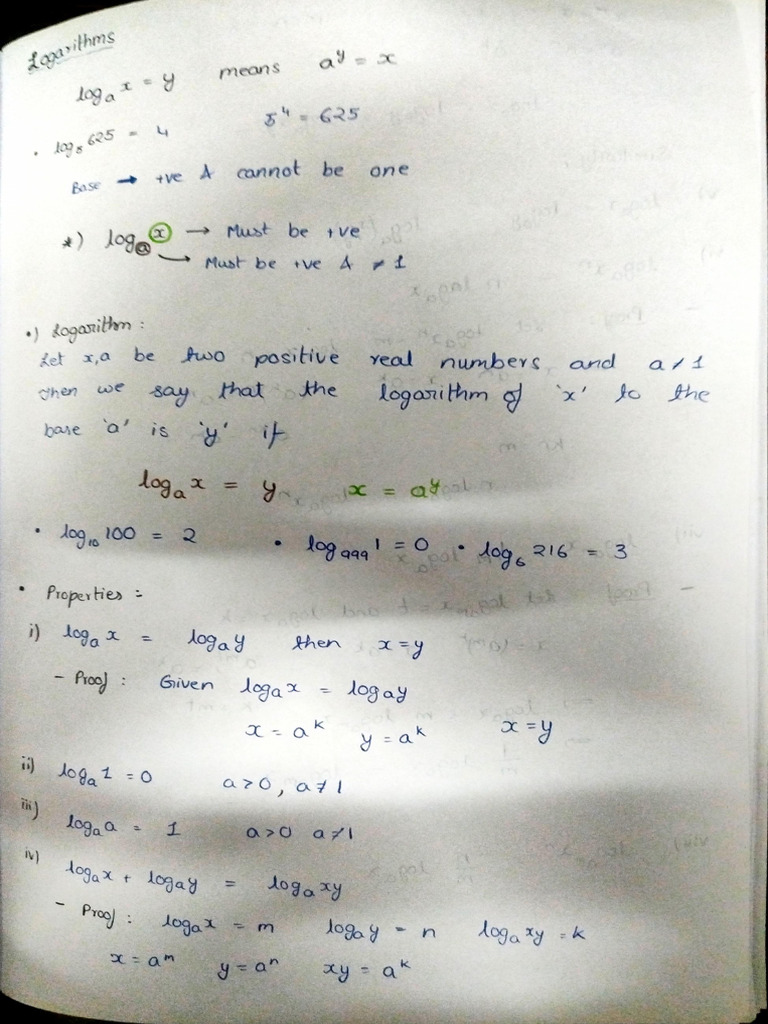 Logarithms
logₐ x = y means aʸ = x
• log₅ 625 = 4 5⁴ = 625
Base → +ve & cannot be one
*) logₐ x → Must be +ve
→ Must be +ve & ≠ 1
•) Logarithm :
Let x,a be two positive real numbers and a ≠ 1
then we say that the logarithm of 'x' to the
base 'a' is 'y' if
logₐ x = y x = aʸ
• log₁₀ 100 = 2 • log₉₉₉ 1 = 0 • log₆ 216 = 3
• Properties :-
i) logₐ x = logₐ y then x = y
- Proof : Given logₐ x = logₐ y
x = aᵏ y = aᵏ x = y
ii) logₐ 1 = 0 a > 0, a ≠ 1
iii) logₐ a = 1 a > 0 a ≠ 1
iv) logₐ x + logₐ y = logₐ xy
- Proof : logₐ x = m logₐ y = n logₐ xy = k
x = aᵐ y = aⁿ xy = aᵏ